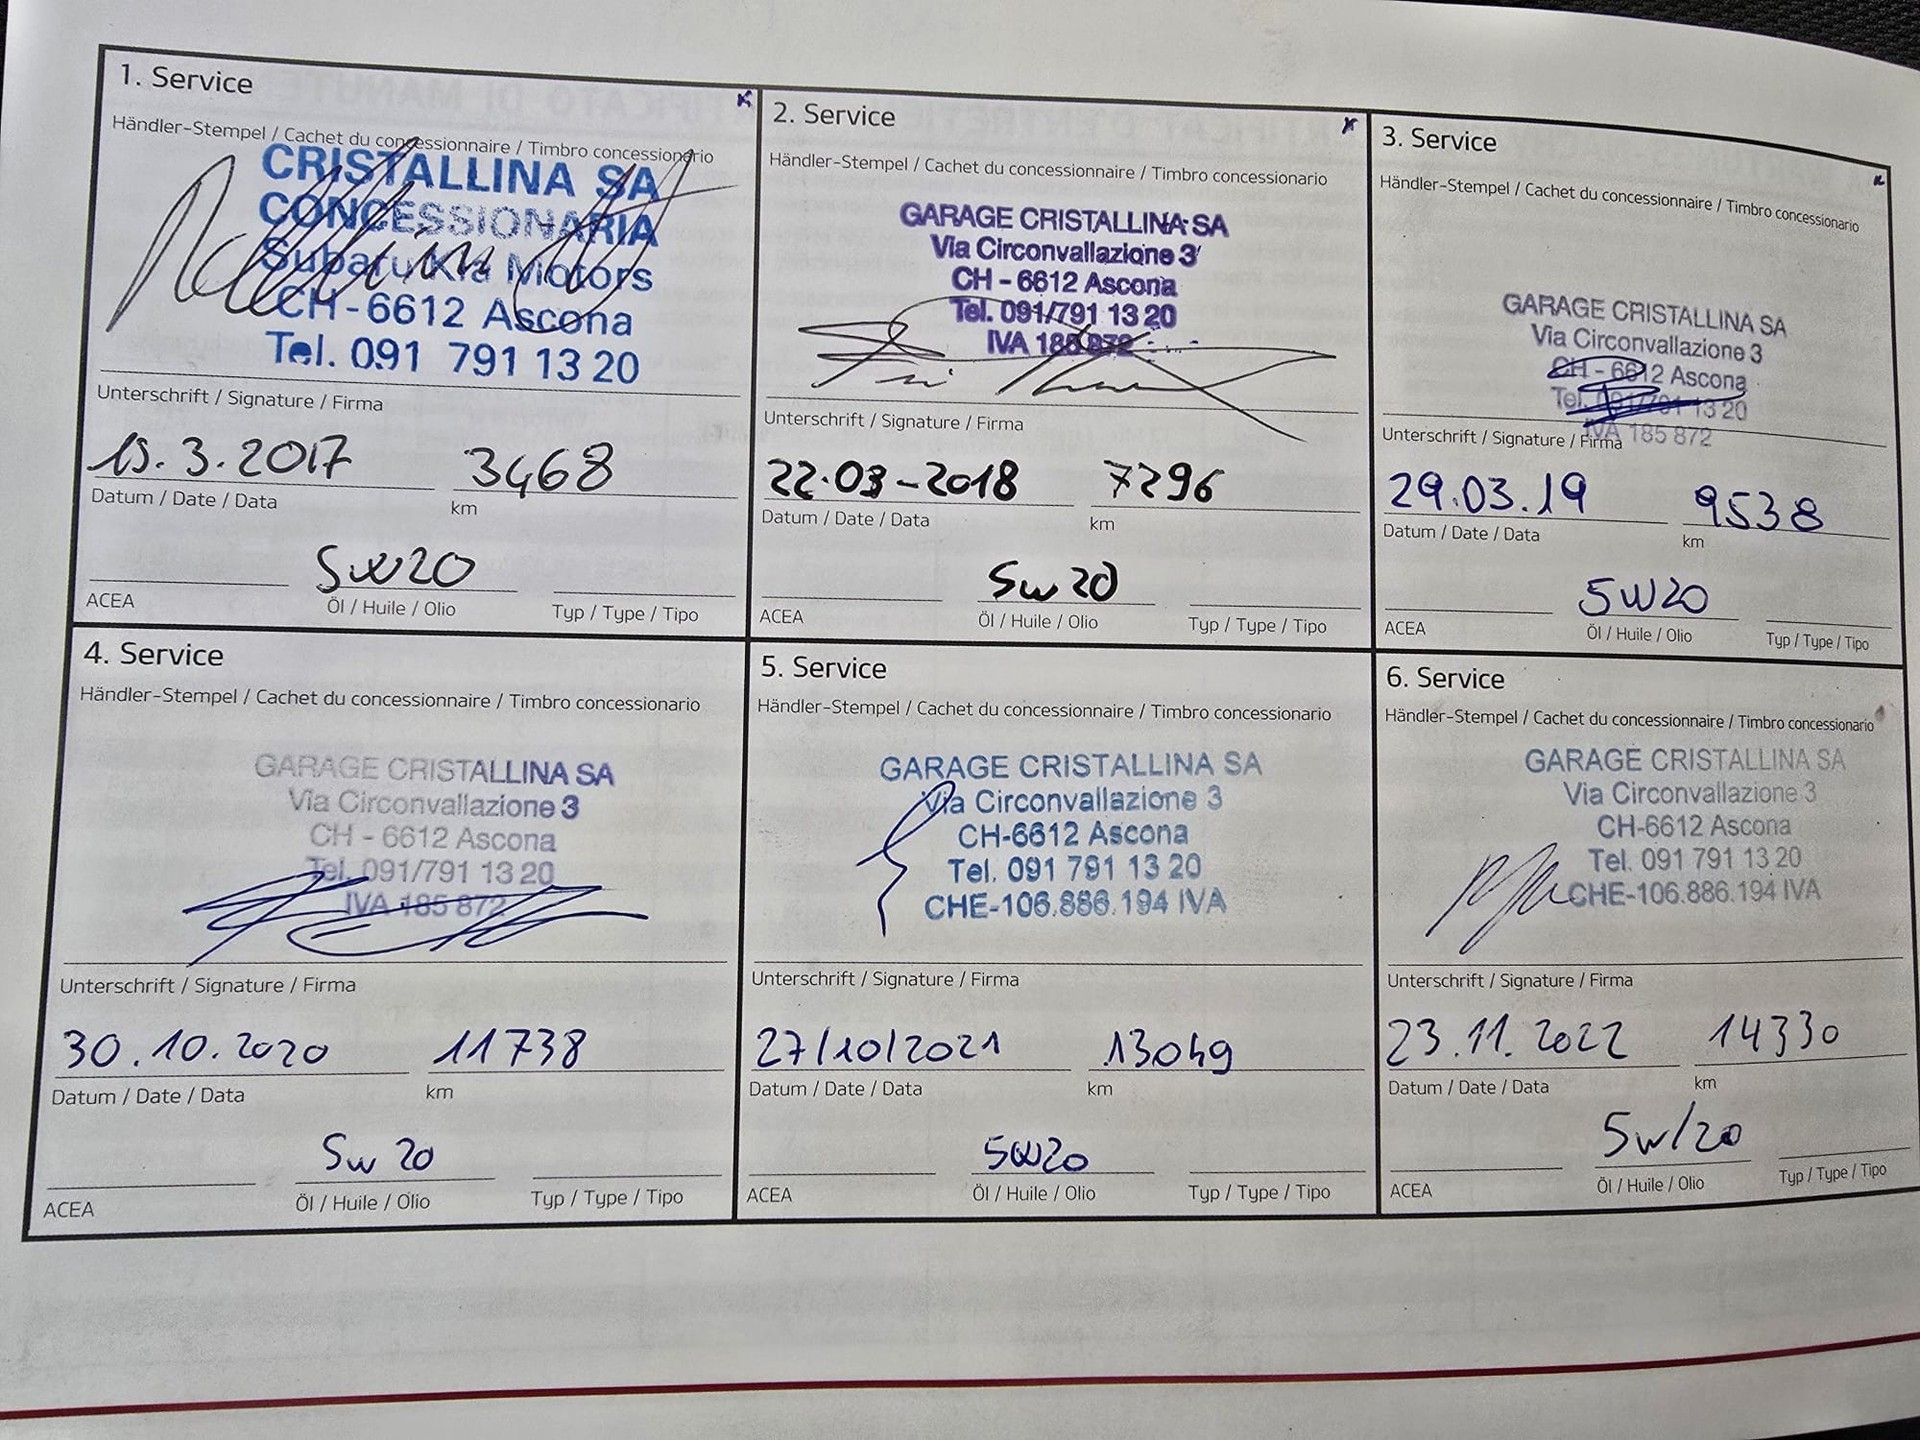 1. Service
Händler-Stempel / Cachet du concessionnaire / Timbro concessionario
CRISTALLINA SA
CONCESSIONARIA
Subaru Kia Motors
CH-6612 Ascona
Tel. 091 791 13 20
Unterschrift / Signature / Firma
15.3.2017 3468
Datum / Date / Data km
5W20
ACEA Öl / Huile / Olio Typ / Type / Tipo
2. Service
Händler-Stempel / Cachet du concessionnaire / Timbro concessionario
GARAGE CRISTALLINA SA
Via Circonvallazione 3
CH - 6612 Ascona
Tel. 091/791 13 20
IVA 185 872
Unterschrift / Signature / Firma
22.03-2018 7296
Datum / Date / Data km
5w20
ACEA Öl / Huile / Olio Typ / Type / Tipo
3. Service
Händler-Stempel / Cachet du concessionnaire / Timbro concessionario
GARAGE CRISTALLINA SA
Via Circonvallazione 3
CH - 6612 Ascona
Tel. 091/791 13 20
IVA 185 872
Unterschrift / Signature / Firma
29.03.19 9538
Datum / Date / Data km
5W20
ACEA Öl / Huile / Olio Typ / Type / Tipo
4. Service
Händler-Stempel / Cachet du concessionnaire / Timbro concessionario
GARAGE CRISTALLINA SA
Via Circonvallazione 3
CH - 6612 Ascona
Tel. 091/791 13 20
IVA 185 872
Unterschrift / Signature / Firma
30.10.2020 11738
Datum / Date / Data km
5w 20
ACEA Öl / Huile / Olio Typ / Type / Tipo
5. Service
Händler-Stempel / Cachet du concessionnaire / Timbro concessionario
GARAGE CRISTALLINA SA
Via Circonvallazione 3
CH-6612 Ascona
Tel. 091 791 13 20
CHE-106.886.194 IVA
Unterschrift / Signature / Firma
27/10/2021 13049
Datum / Date / Data km
5W20
ACEA Öl / Huile / Olio Typ / Type / Tipo
6. Service
Händler-Stempel / Cachet du concessionnaire / Timbro concessionario
GARAGE CRISTALLINA SA
Via Circonvallazione 3
CH-6612 Ascona
Tel. 091 791 13 20
CHE-106.886.194 IVA
Unterschrift / Signature / Firma
23.11.2022 14330
Datum / Date / Data km
5w/20
ACEA Öl / Huile / Olio Typ / Type / Tipo